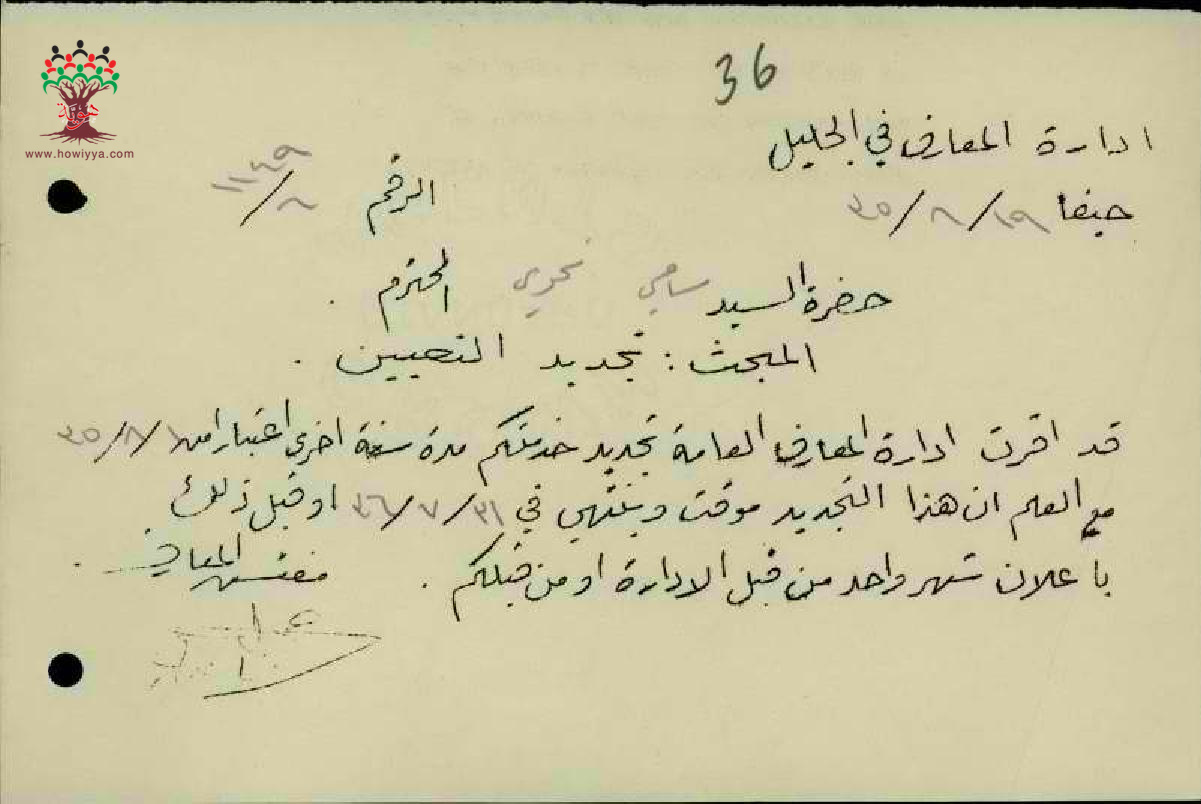 36
هوية
www.howiyya.com
ادارة المعارف في الجليل
حيفا ١٩/٨/٤٥ الرقم ١١٤٩/٨
حضرة السيد سامي نحوي المحترم .
المبحث : تجديد التعيين .
قد اقرت ادارة المعارف العامة تجديد خدمتكم مدة سنة اخرى اعتبارا من ١/٨/٤٥
مع العلم ان هذا التجديد موقت وينتهي في ٣١/٧/٤٦ او قبل ذلك
بأعلان شهر واحد من قبل الادارة او من قبلكم .
مفتش المعارف .